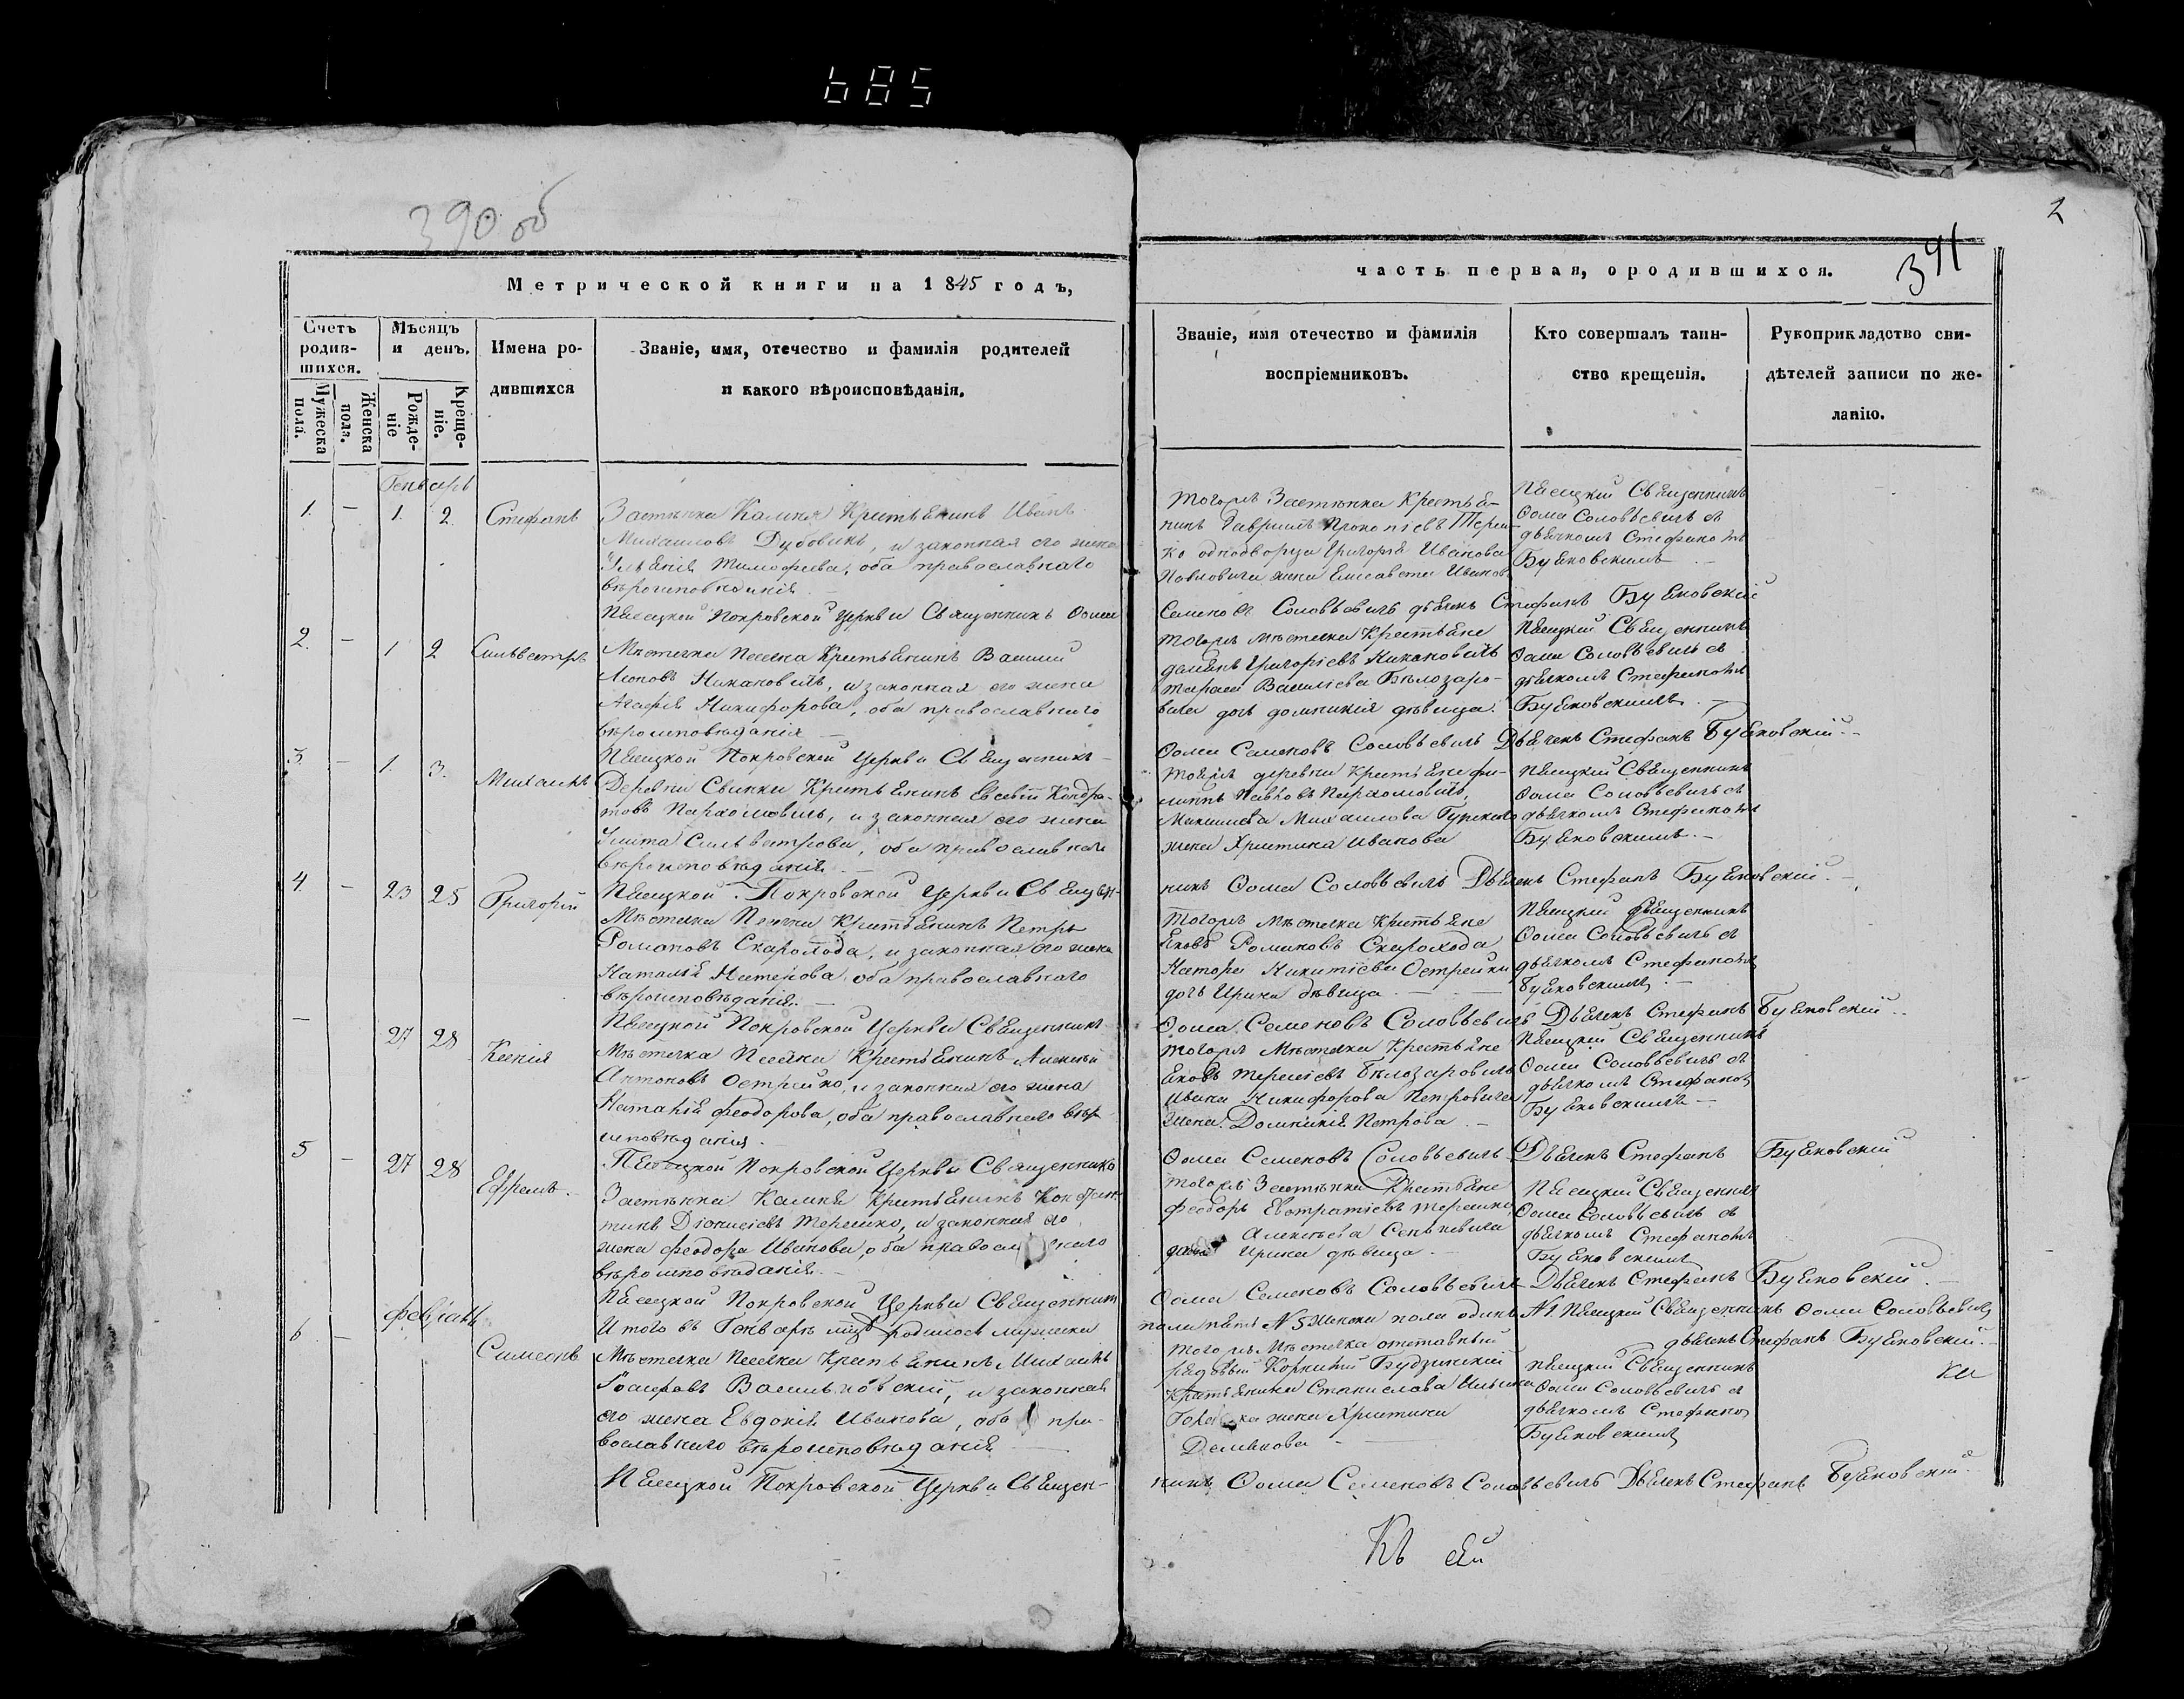 685
390 об
2
391
Метрической книги на 1845 годъ,
часть первая, ородившихся.
Счетъ родив-
шихся.
Мужеска пола.
Женска пола.
Мѣсяцъ и день.
Рожде-
ніе
Креще-
ніе.
Имена ро-
дившихся
Званіе, имя, отечество и фамилія родителей
и какого вѣроисповѣданія.
Званіе, имя отечество и фамилія
воспріемниковъ.
Кто совершалъ таин-
ство крещенія.
Рукоприкладство сви-
дѣтелей записи по же-
ланію.
Генварь
1. – 1. 2. Стефанъ
Застѣнка Камня Крестьянинъ Иванъ
Михаиловъ Дубовикъ, и законная его жена
Ульянія Тимофеева, оба православнаго
вѣроисповѣданія.
тогожъ Застѣнка Крестья-
нинъ Гавріилъ Прокопіевъ
ко однодворца Григорія Иванова
жена Елисавета
Священникъ
Фома Соловьевичъ съ
дьячкомъ Стефаномъ
Буяковскимъ
Покровской Церкви Священникъ Фома
Семеновъ Соловьевичъ дьячекъ Стефанъ Буяковскій
2. – 1 2 Сильвестръ
Мѣстечка Крестьянинъ Василій
и законная его жена
Агафія Никифорова, оба православнаго
вѣроисповѣданія –
тогожъ мѣстечка Крестьяне
Григоріевъ
Василіева Бѣлозаро-
вича дочь Домникія дѣвица.
Священникъ
Фома Соловьевичъ съ
дьячкомъ Стефаномъ
Буяковскимъ. –
Покровской Церкви Священникъ
Фома Семеновъ Соловьевичъ Дьячекъ Стефанъ Буяковскій. –
3. – 1. 3. Михаилъ
Деревни Свинки Крестьянинъ Евсевій Кондра-
товъ Пархомовичъ, и законная его жена
Улита Сильвестрова, оба православнаго
вѣроисповѣданія.
тояжъ деревни Крестьяне Фи-
липпъ Пархомовичъ,
Михаилова
жена Христина Иванова
Священникъ
Фома Соловьевичъ съ
дьячкомъ Стефаномъ
Буяковскимъ. –
Покровской Церкви Священ-
никъ Фома Соловьевичъ Дьячекъ Стефанъ Буяковскій. –
4 – 23 25 Григорій
Мѣстечка Крестьянинъ Петръ
Романовъ Скорохода, и законная его жена
Наталія оба православнаго
вѣроисповѣданія. –
тогожъ Мѣстечка Крестьяне
Яковъ Романовъ Скорохода
Острейки
дочь Ирина дѣвица –
Священникъ
Фома Соловьевичъ съ
дьячкомъ Стефаномъ
Буяковскимъ –
Покровской Церкви Священникъ
Фома Семеновъ Соловьевичъ Дьячекъ Стефанъ Буяковскій..
– 27 28 Ксенія
Мѣстечка Крестьянинъ Алексѣй
Антоновъ Острейко, и законная его жена
Наталія Феодорова, оба православнаго вѣро-
исповѣданія. –
тогожъ Мѣстечка Крестьяне
Яковъ Бѣлозаровичъ
Ивана Никифорова Петровича
жена Домникія Петрова –
Священникъ
Фома Соловьевичъ съ
дьячкомъ Стефаномъ
Буяковскимъ –
Покровской Церкви Священникъ
Фома Семеновъ Соловьевичъ Дьячекъ Стефанъ Буяковскій
5 – 27 28 Ефремъ.
Застѣнка Камня Крестьянинъ Констан-
тинъ Діонисіевъ Терешко, и законная его
жена Феодора Иванова, оба православнаго
вѣроисповѣданія. –
тогожъ Застѣнка Крестьяне
Феодоръ Евстратіевъ Терешко,
Алексѣева
Ирина дѣвица. –
Священникъ
Фома Соловьевичъ съ
дьячкомъ Стефаномъ
Буяковскимъ
Покровской Церкви Священникъ
Фома Семеновъ Соловьевичъ Дьячекъ Стефанъ Буяковскій. –
Февраль
Итого въ Генварѣ мцѣ родилося мужеска
пола пять №5 женска пола одинъ №1 Священникъ Фома Соловьевичъ
дьячекъ Стефанъ Буяковскій. –
6 – Симеонъ
Мѣстечка Крестьянинъ Михаилъ
Іосифовъ Васильковскій, и законная
его жена Евдокія Иванова, оба пра-
вославнаго вѣроисповѣданія –
тогожъ Мѣстечка отставный
рядовый Корнилій Будзинскій
Крестьянина Станислава
жена Христина
Демьянова –
Священникъ
Фома Соловьевичъ съ
дьячкомъ Стефаномъ
Буяковскимъ
Покровской Церкви Священ-
никъ Фома Семеновъ Соловьевичъ Дьячекъ Стефанъ Буяковскій.
Къ сей